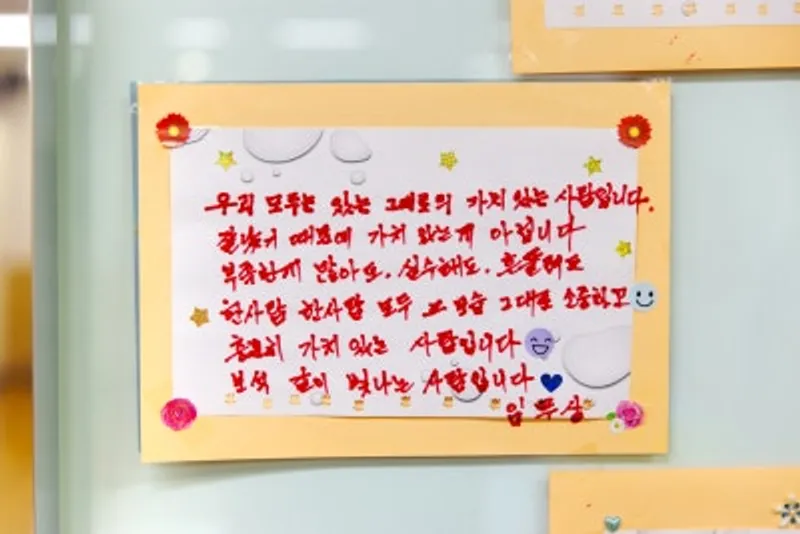 우리 모두는 있는 그대로의 가치 있는 사람입니다.
잘났기 때문에 가치 있는게 아닙니다
부족한게 많아도, 실수해도, 흔들려도
한사람 한사람 모두 그 모습 그대로 소중하고
충분히 가치 있는 사람입니다
보석 같이 빛나는 사람입니다
임두상